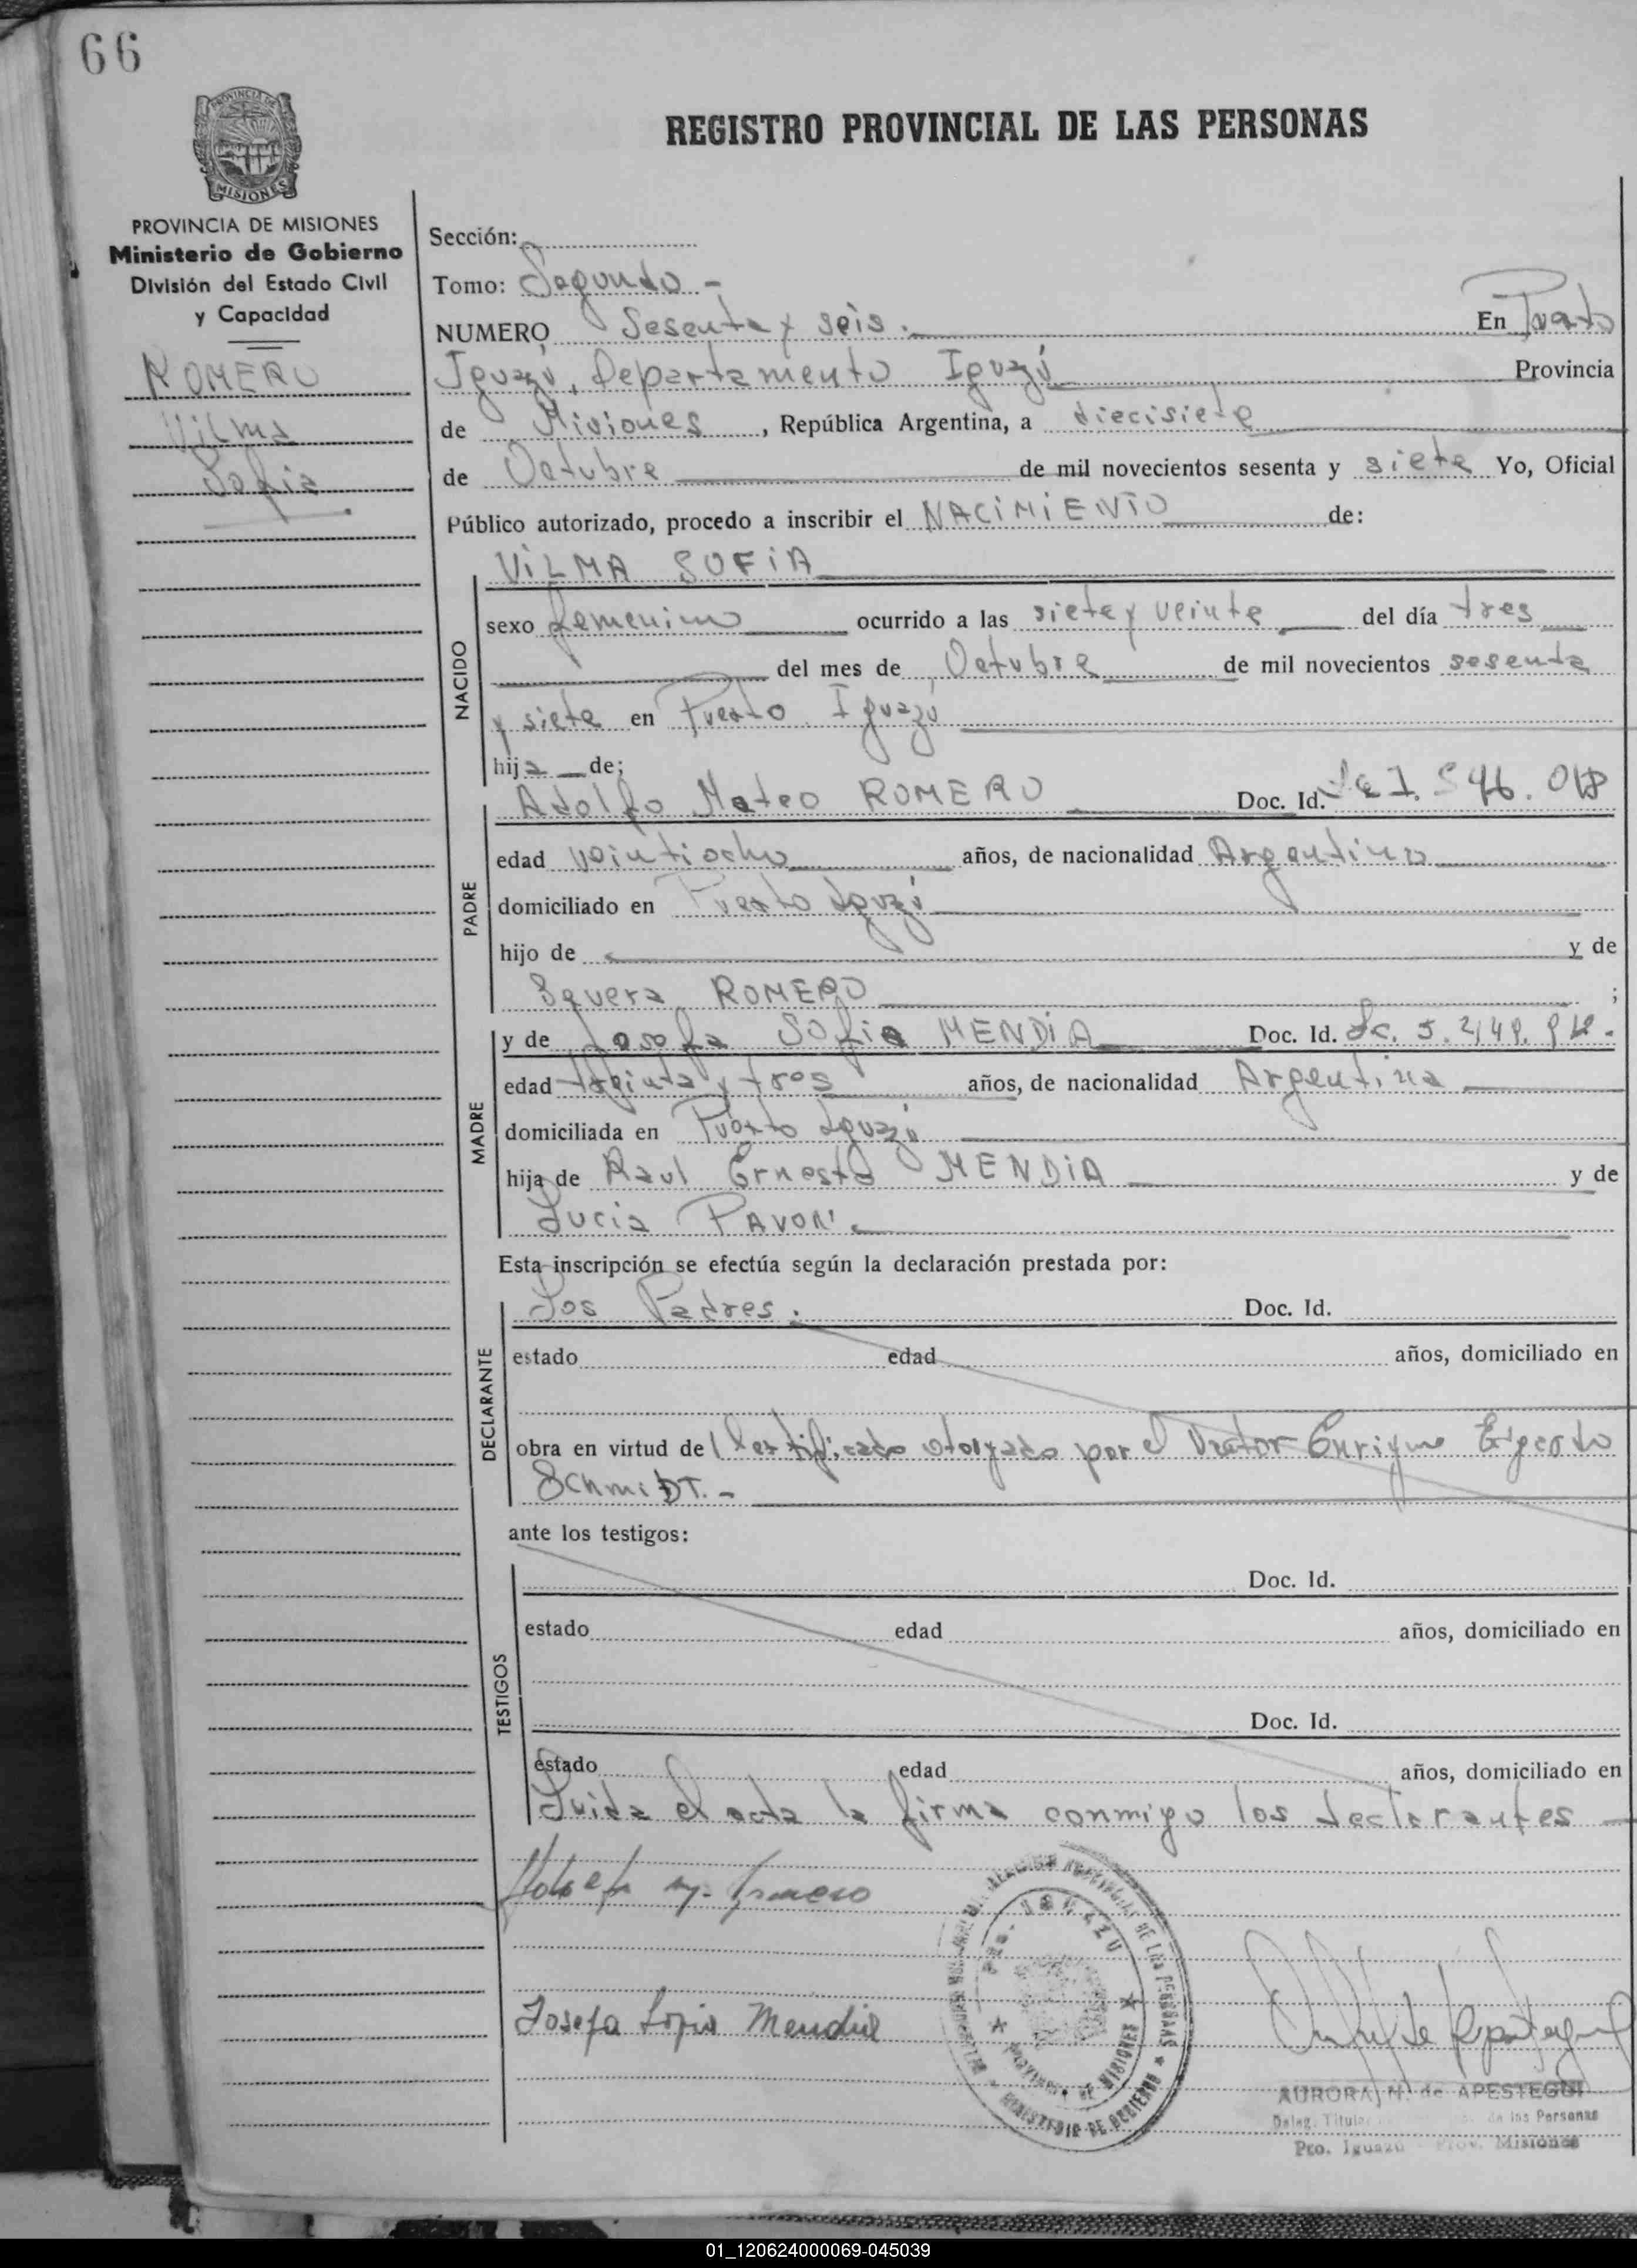 66
PROVINCIA DE
MISIONES
REGISTRO PROVINCIAL DE LAS PERSONAS
PROVINCIA DE MISIONES
Ministerio de Gobierno
División del Estado Civil
y Capacidad
ROMERO
Vilma
Sofia
Sección:
Tomo: Segundo -
NUMERO Sesenta y seis. En Puerto
Iguazú, Departamento Iguazú Provincia
de Misiones, República Argentina, a diecisiete
de Octubre de mil novecientos sesenta y siete Yo, Oficial
Público autorizado, procedo a inscribir el NACIMIENTO de:
VILMA SOFIA
NACIDO
sexo femenino ocurrido a las siete y veinte del día tres
del mes de Octubre de mil novecientos sesenta
y siete en Puerto Iguazú
hija de;
PADRE
Adolfo Mateo ROMERO Doc. Id.
edad veintiocho años, de nacionalidad Argentino
domiciliado en Puerto Iguazú
hijo de y de
ROMERO ;
MADRE
y de Josefa Sofia MENDIA Doc. Id.
edad treinta y tres años, de nacionalidad Argentina
domiciliada en Puerto Iguazú
hija de Raul Ernesto MENDIA y de
Lucia PAVON.
Esta inscripción se efectúa según la declaración prestada por:
DECLARANTE
Los Padres. Doc. Id.
estado edad años, domiciliado en
obra en virtud del Certificado otorgado por el Doctor Enrique
SchmiDT. -
ante los testigos:
TESTIGOS
Doc. Id.
estado edad años, domiciliado en
Doc. Id.
estado edad años, domiciliado en
Leida el acta la firma conmigo los declarantes
Josefa Sofia Mendia
PROVINCIA DE MISIONES
MINISTERIO DE GOBIERNO
AURORA N. de APESTEGUI
Deleg. Titular de las Personas
Pto. Iguazú - Prov. Misiones
01_120624000069-045039